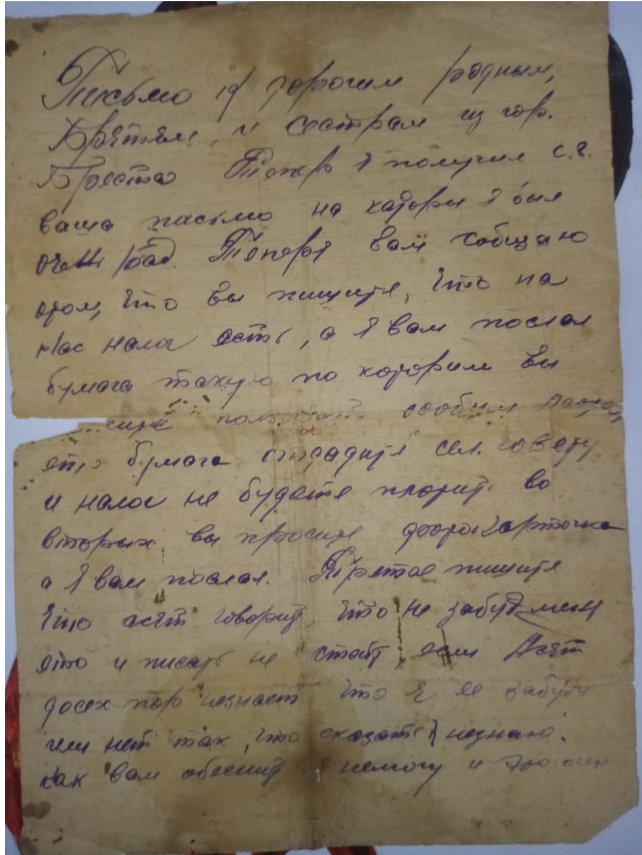 Письмо к дорогим родным,
братьям, и сестрам из гор.
Бреста Теперь я получил с.г.
ваша письмо на каторы я был
очень рад. Теперя вам собщаю
отом, что вы пишите, что на
нас налог есть, а я вам послал
бумага такую по которым вы
ето бумага сел. совету
и налог не будете плотить во
вторых вы просите фотокарточка
а я вам послал. Третое пишите
что асят говорит, что не забуд меня
ето и писать не стоит, если Асят
досех пор незнает что я ее забуду
или нет так, что сказать я незнаю.
как вам обеснит я немогу и это